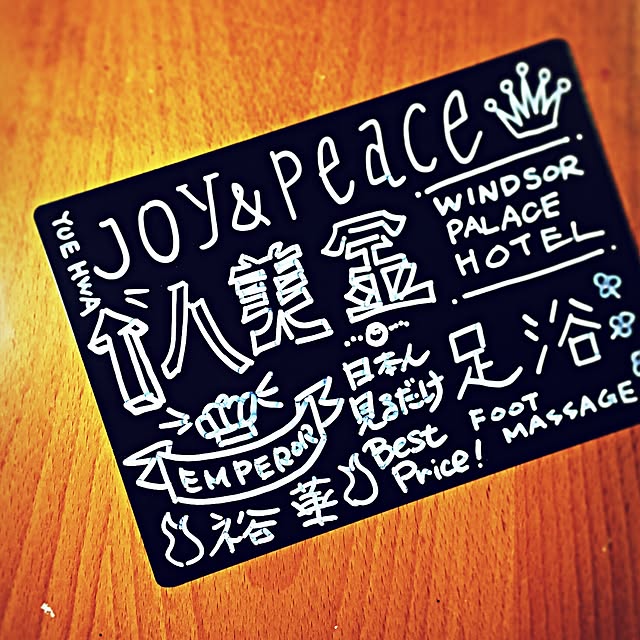 JOY & Peace
YUE HWA
WINDSOR
PALACE
HOTEL
足浴
FOOT
MASSAGE
日本人
見るだけ
Best
Price!
EMPEROR
裕華